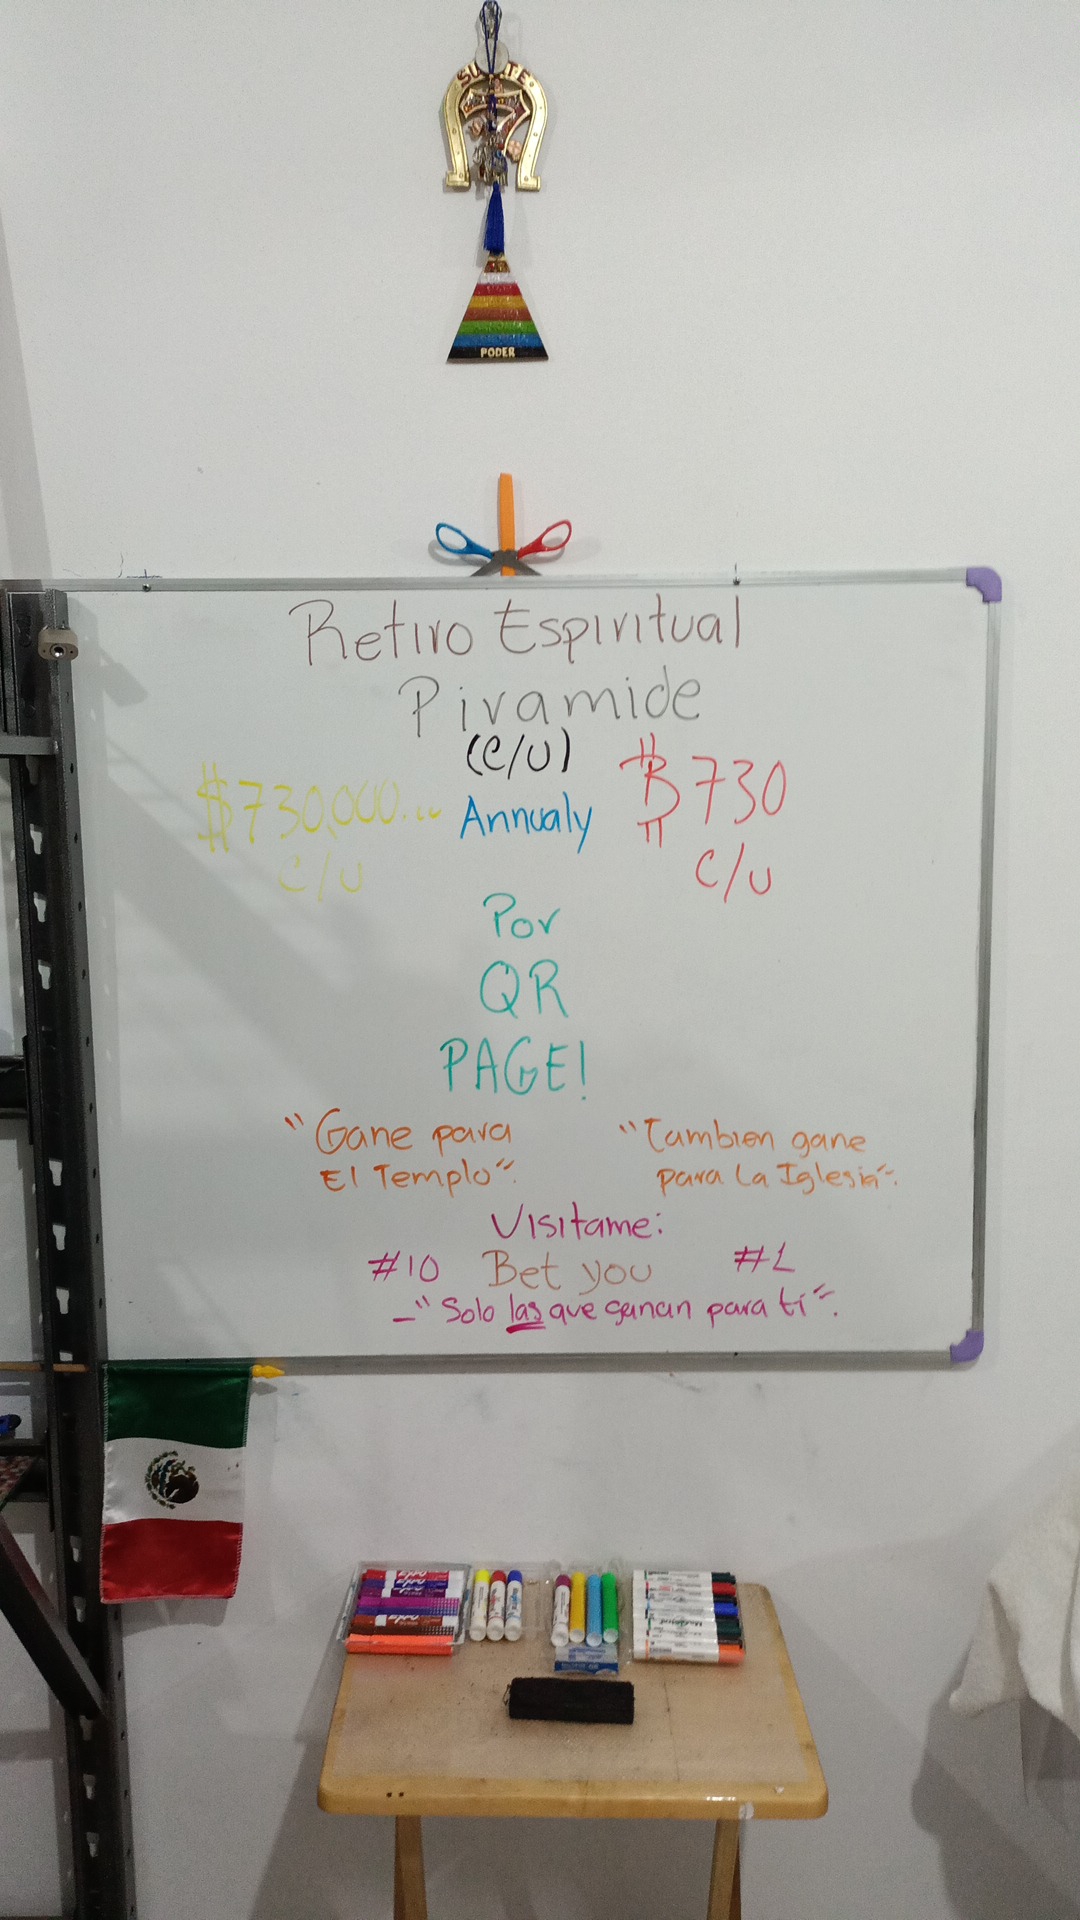 SUERTE
PODER
Retiro Espiritual
Piramide
(C/U)
$730,000...
C/U
Annualy
₿730
C/U
Por
QR
PAGE!
"Gane para
El Templo".
"Tambien gane
para La Iglesia".
Visitame:
#10 Bet you #1
-"Solo las que ganan para ti".
EXPO
EXPO
EXPO